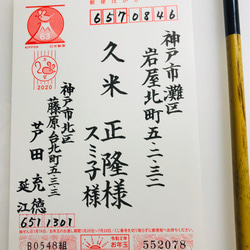 郵便はがき
6570846
神戸市灘区
岩屋北町五・二・三一
久米 正隆様
スミ子様
神戸市北区
藤原台北町五三三
芦田 充徳
延江
6511301
NIPPON
2020
B0548組
552078